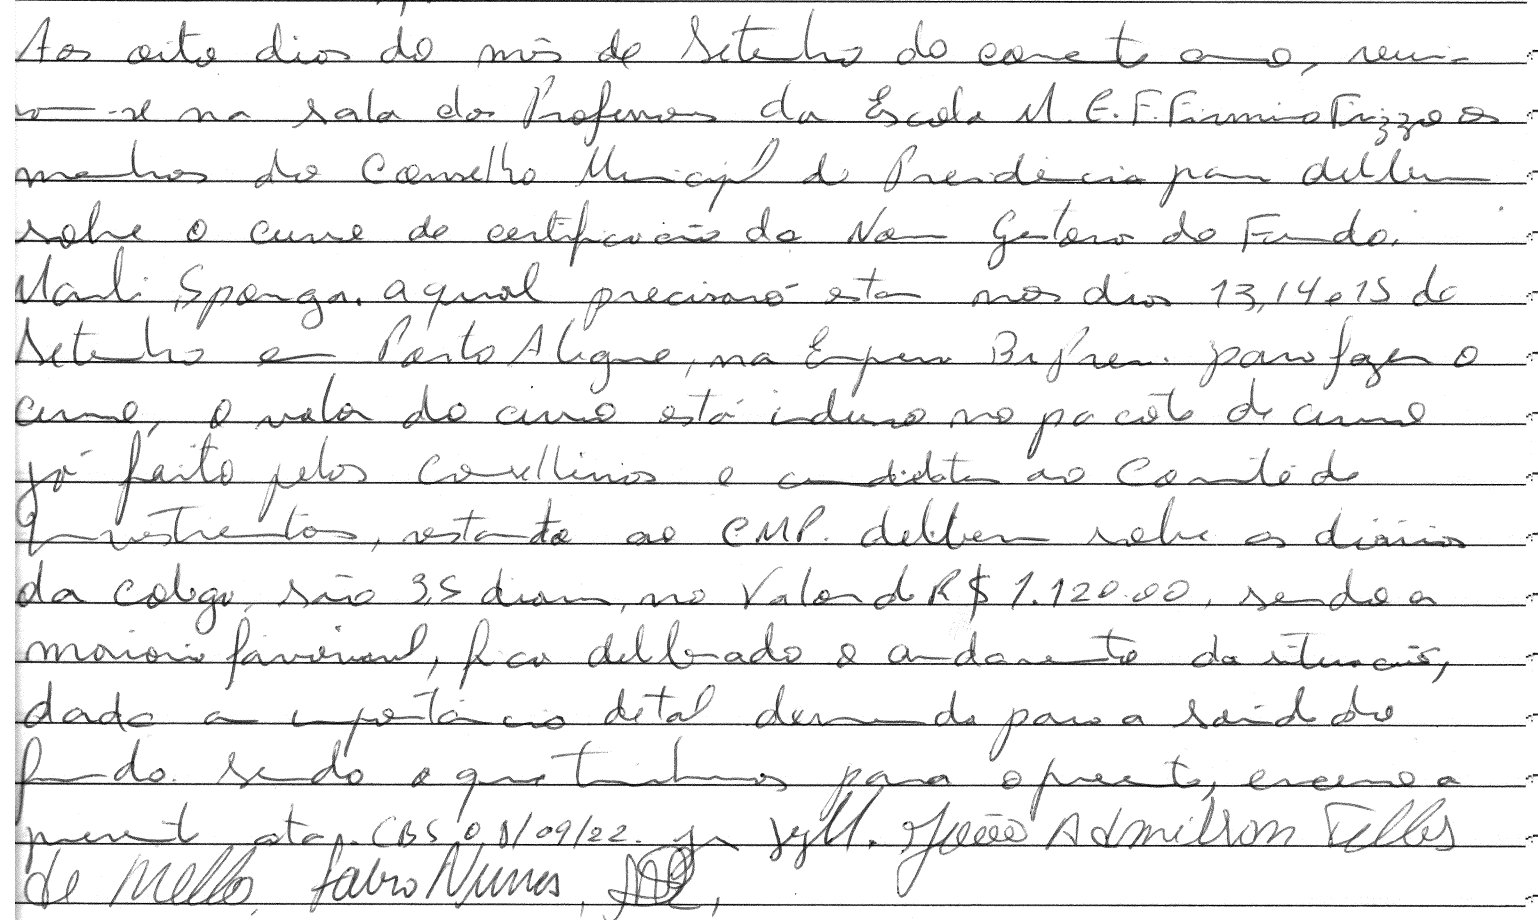 Aos oito dias do mês de Setembro do corrente ano, reuni-
ram-se na sala dos Professores da Escola M.E.F. Firmino Frizzo os
membros do Conselho Municipal de Previdência para deliberar
sobre o curso de certificação da Nova Gestora do Fundo.
Marli Sponga. a qual precisará estar nos dias 13, 14 e 15 de
Setembro em Porto Alegre, na Empresa para fazer o
curso, o valor do curso está incluso no pacote de curso
já feito pelos Conselheiros e candidatos ao Comitê de
Investimentos, restando ao CMP. deliberar sobre as diárias
da colega, são 3,5 diárias, no Valor de R$ 1.120.00, sendo a
maioria favorável, fica deliberado o andamento da situação,
dada a importância de tal demanda para a saúde do
fundo. sendo o que tínhamos para o presente, encerro a
presente ata. CBS 08/09/22. João Admilson Telles
de Mello, Fabio Nunes,